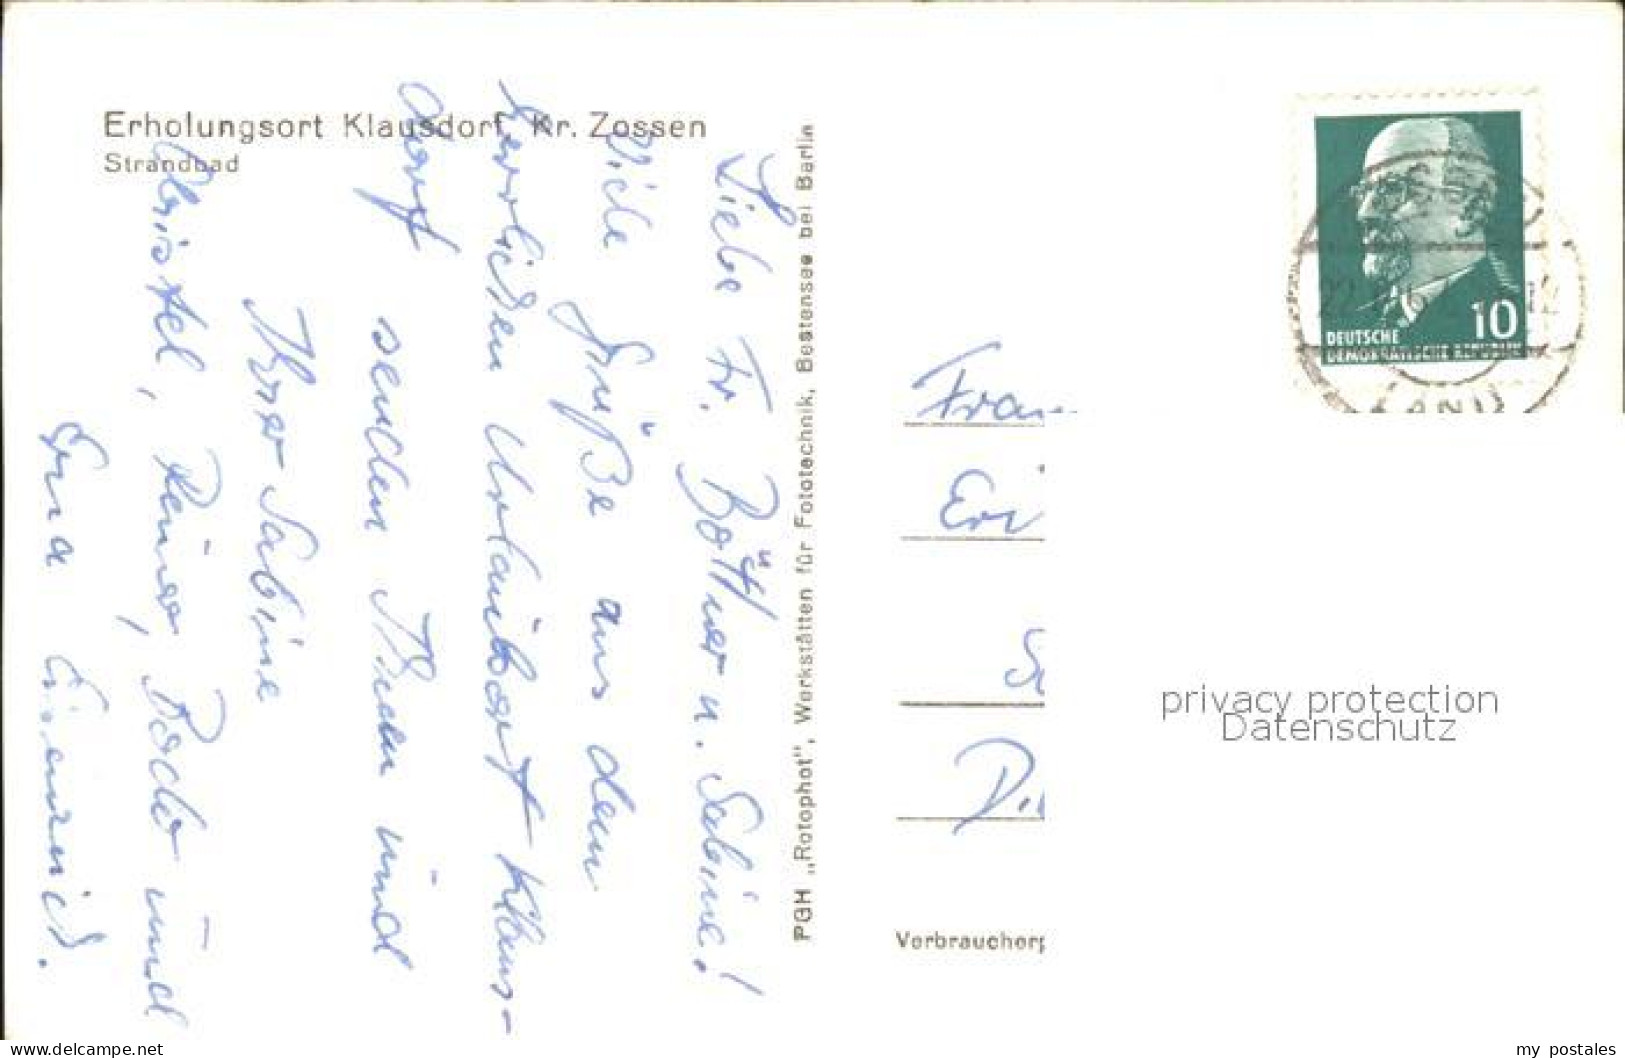 Erholungsort Klausdorf, Kr. Zossen
Strandbad
Liebe Fr. Böttner u. Sabine!
Viele Grüße aus dem
herrlichen Urlaubsort Klaus-
dorf senden Ihnen und
Ihrer Sabine
Christel, Reiner, Bodo und
Erna
PGH „Rotophot", Werkstätten für Fototechnik, Bestensee bei Berlin
10
DEUTSCHE
DEMOKRATISCHE REPUBLIK
LAND
Frau
Verbraucherp
privacy protection
Datenschutz
www.delcampe.net
my_postales